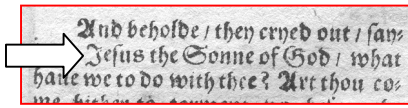 And beholde / they cryed out / say⸗
Jesus the Sonne of God / what
haue we to do with thee? Art thou co⸗
me hither to